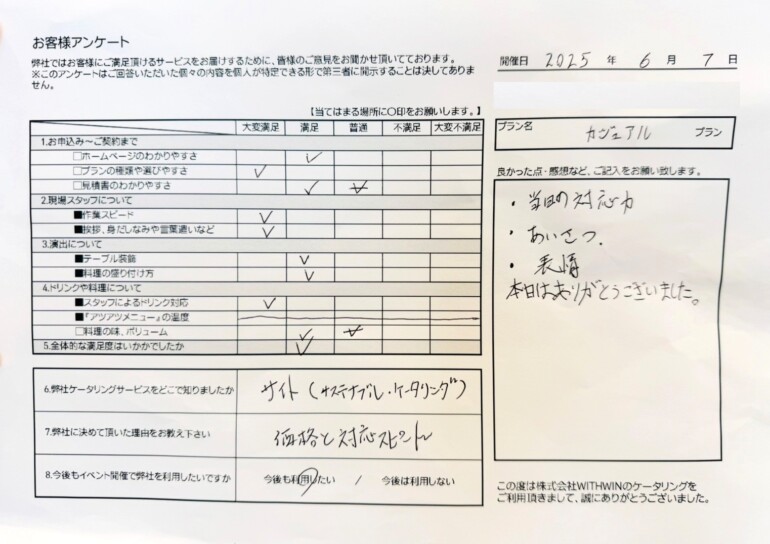 お客様アンケート
弊社ではお客様にご満足頂けるサービスをお届けするために、皆様のご意見をお聞かせ頂いております。
※このアンケートはご回答いただいた個々の内容を個人が特定できる形で第三者に開示することは決してありま
せん。
開催日 2025 年 6 月 7 日
【当てはまる場所に〇印をお願いします。】
大変満足 満足 普通 不満足 大変不満足
プラン名 カジュアル プラン
1.お申込み～ご契約まで
□ホームページのわかりやすさ ✓
□プランの種類や選びやすさ ✓
□見積書のわかりやすさ ✓
2.現場スタッフについて
■作業スピード ✓
■挨拶、身だしなみや言葉遣いなど ✓
3.演出について
■テーブル装飾 ✓
■料理の盛り付け方 ✓
4.ドリンクや料理について
■スタッフによるドリンク対応 ✓
■『アツアツメニュー』の温度
□料理の味、ボリューム ✓
5.全体的な満足度はいかがでしたか ✓
良かった点・感想など、ご記入をお願い致します。
・当日の対応力
・あいさつ.
・表情
本日はありがとうございました。
6.弊社ケータリングサービスをどこで知りましたか サイト(サステナブル・ケータリング)
7.弊社に決めて頂いた理由をお教え下さい 価格と対応スピード
8.今後もイベント開催で弊社を利用したいですか 今後も利用したい / 今後は利用しない
この度は株式会社WITHWINのケータリングを
ご利用頂きまして、誠にありがとうございました。